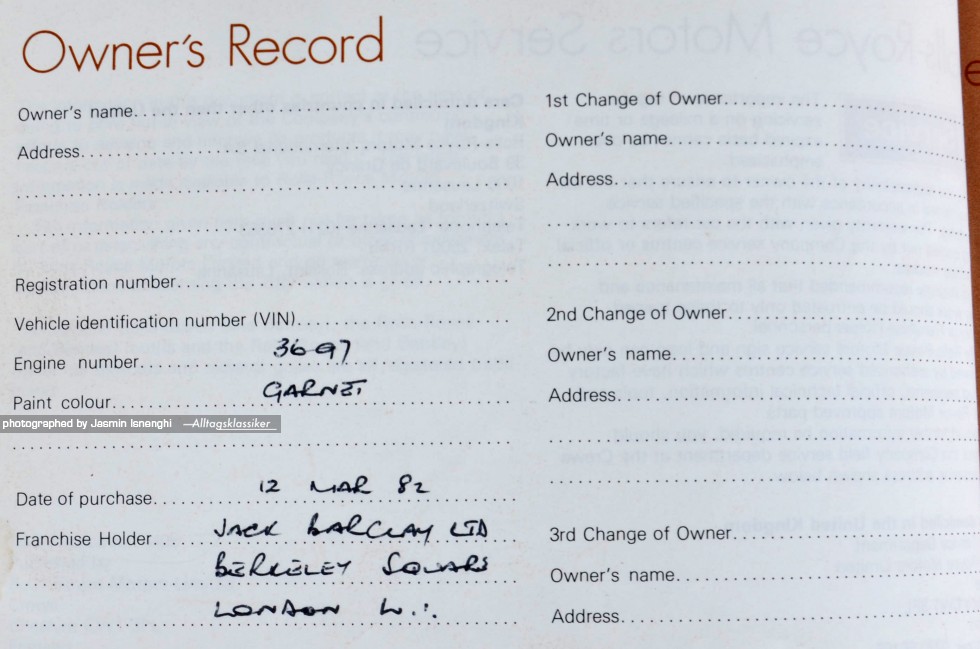 Owner's Record
Owner's name
Address
Registration number
Vehicle identification number (VIN)
Engine number 3697
Paint colour GARNET
Date of purchase 12 MAR 82
Franchise Holder JACK BARCLAY LTD
BERKELEY SQUARE
LONDON W.1.
1st Change of Owner
Owner's name
Address
2nd Change of Owner
Owner's name
Address
3rd Change of Owner
Owner's name
Address
photographed by Jasmin Isnenghi —Alltagsklassiker